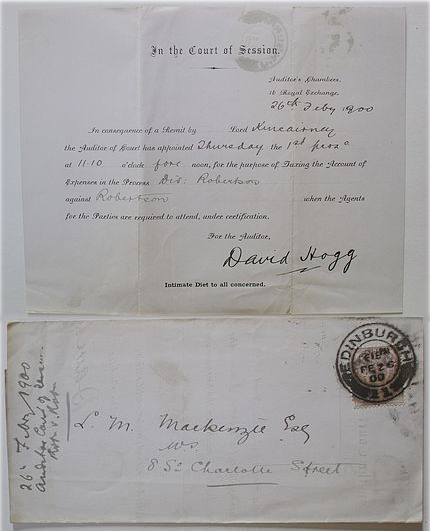 In the Court of Session.
Auditor's Chambers,
16 Royal Exchange,
26th Feby 1900
In consequence of a Remit by Lord Kincairney
the Auditor of Court has appointed Thursday the 1st proxo
at 11·10 o'clock fore noon, for the purpose of Taxing the Account of
Expenses in the Process Div: Robertson
against Robertson when the Agents
for the Parties are required to attend, under certification.
For the Auditor,
David Hogg
Intimate Diet to all concerned.
EDINBURGH
FE 26
00
26 Feby 1900
Auditor Court of
Rob v. Rob
L. M. Mackenzie Esq
WS
8 So Charlotte Street